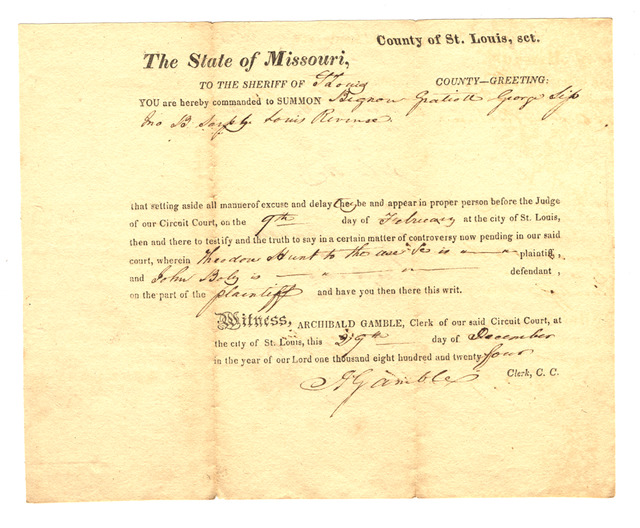 County of St. Louis, sct.
The State of Missouri,
TO THE SHERIFF OF St Louis COUNTY—GREETING:
YOU are hereby commanded to SUMMON Gratiott George
Jno B. Sarpy Louis
that setting aside all manner of excuse and delay they be and appear in proper person before the Judge
of our Circuit Court, on the 9th day of February at the city of St. Louis,
then and there to testify and the truth to say in a certain matter of controversy now pending in our said
court, wherein Theodore Hunt to the use is plaintiff,
and John is defendant,
on the part of the plaintiff and have you then there this writ.
Witness, ARCHIBALD GAMBLE, Clerk of our said Circuit Court, at
the city of St. Louis, this 29th day of December
in the year of our Lord one thousand eight hundred and twenty four
A Gamble Clerk, C. C.